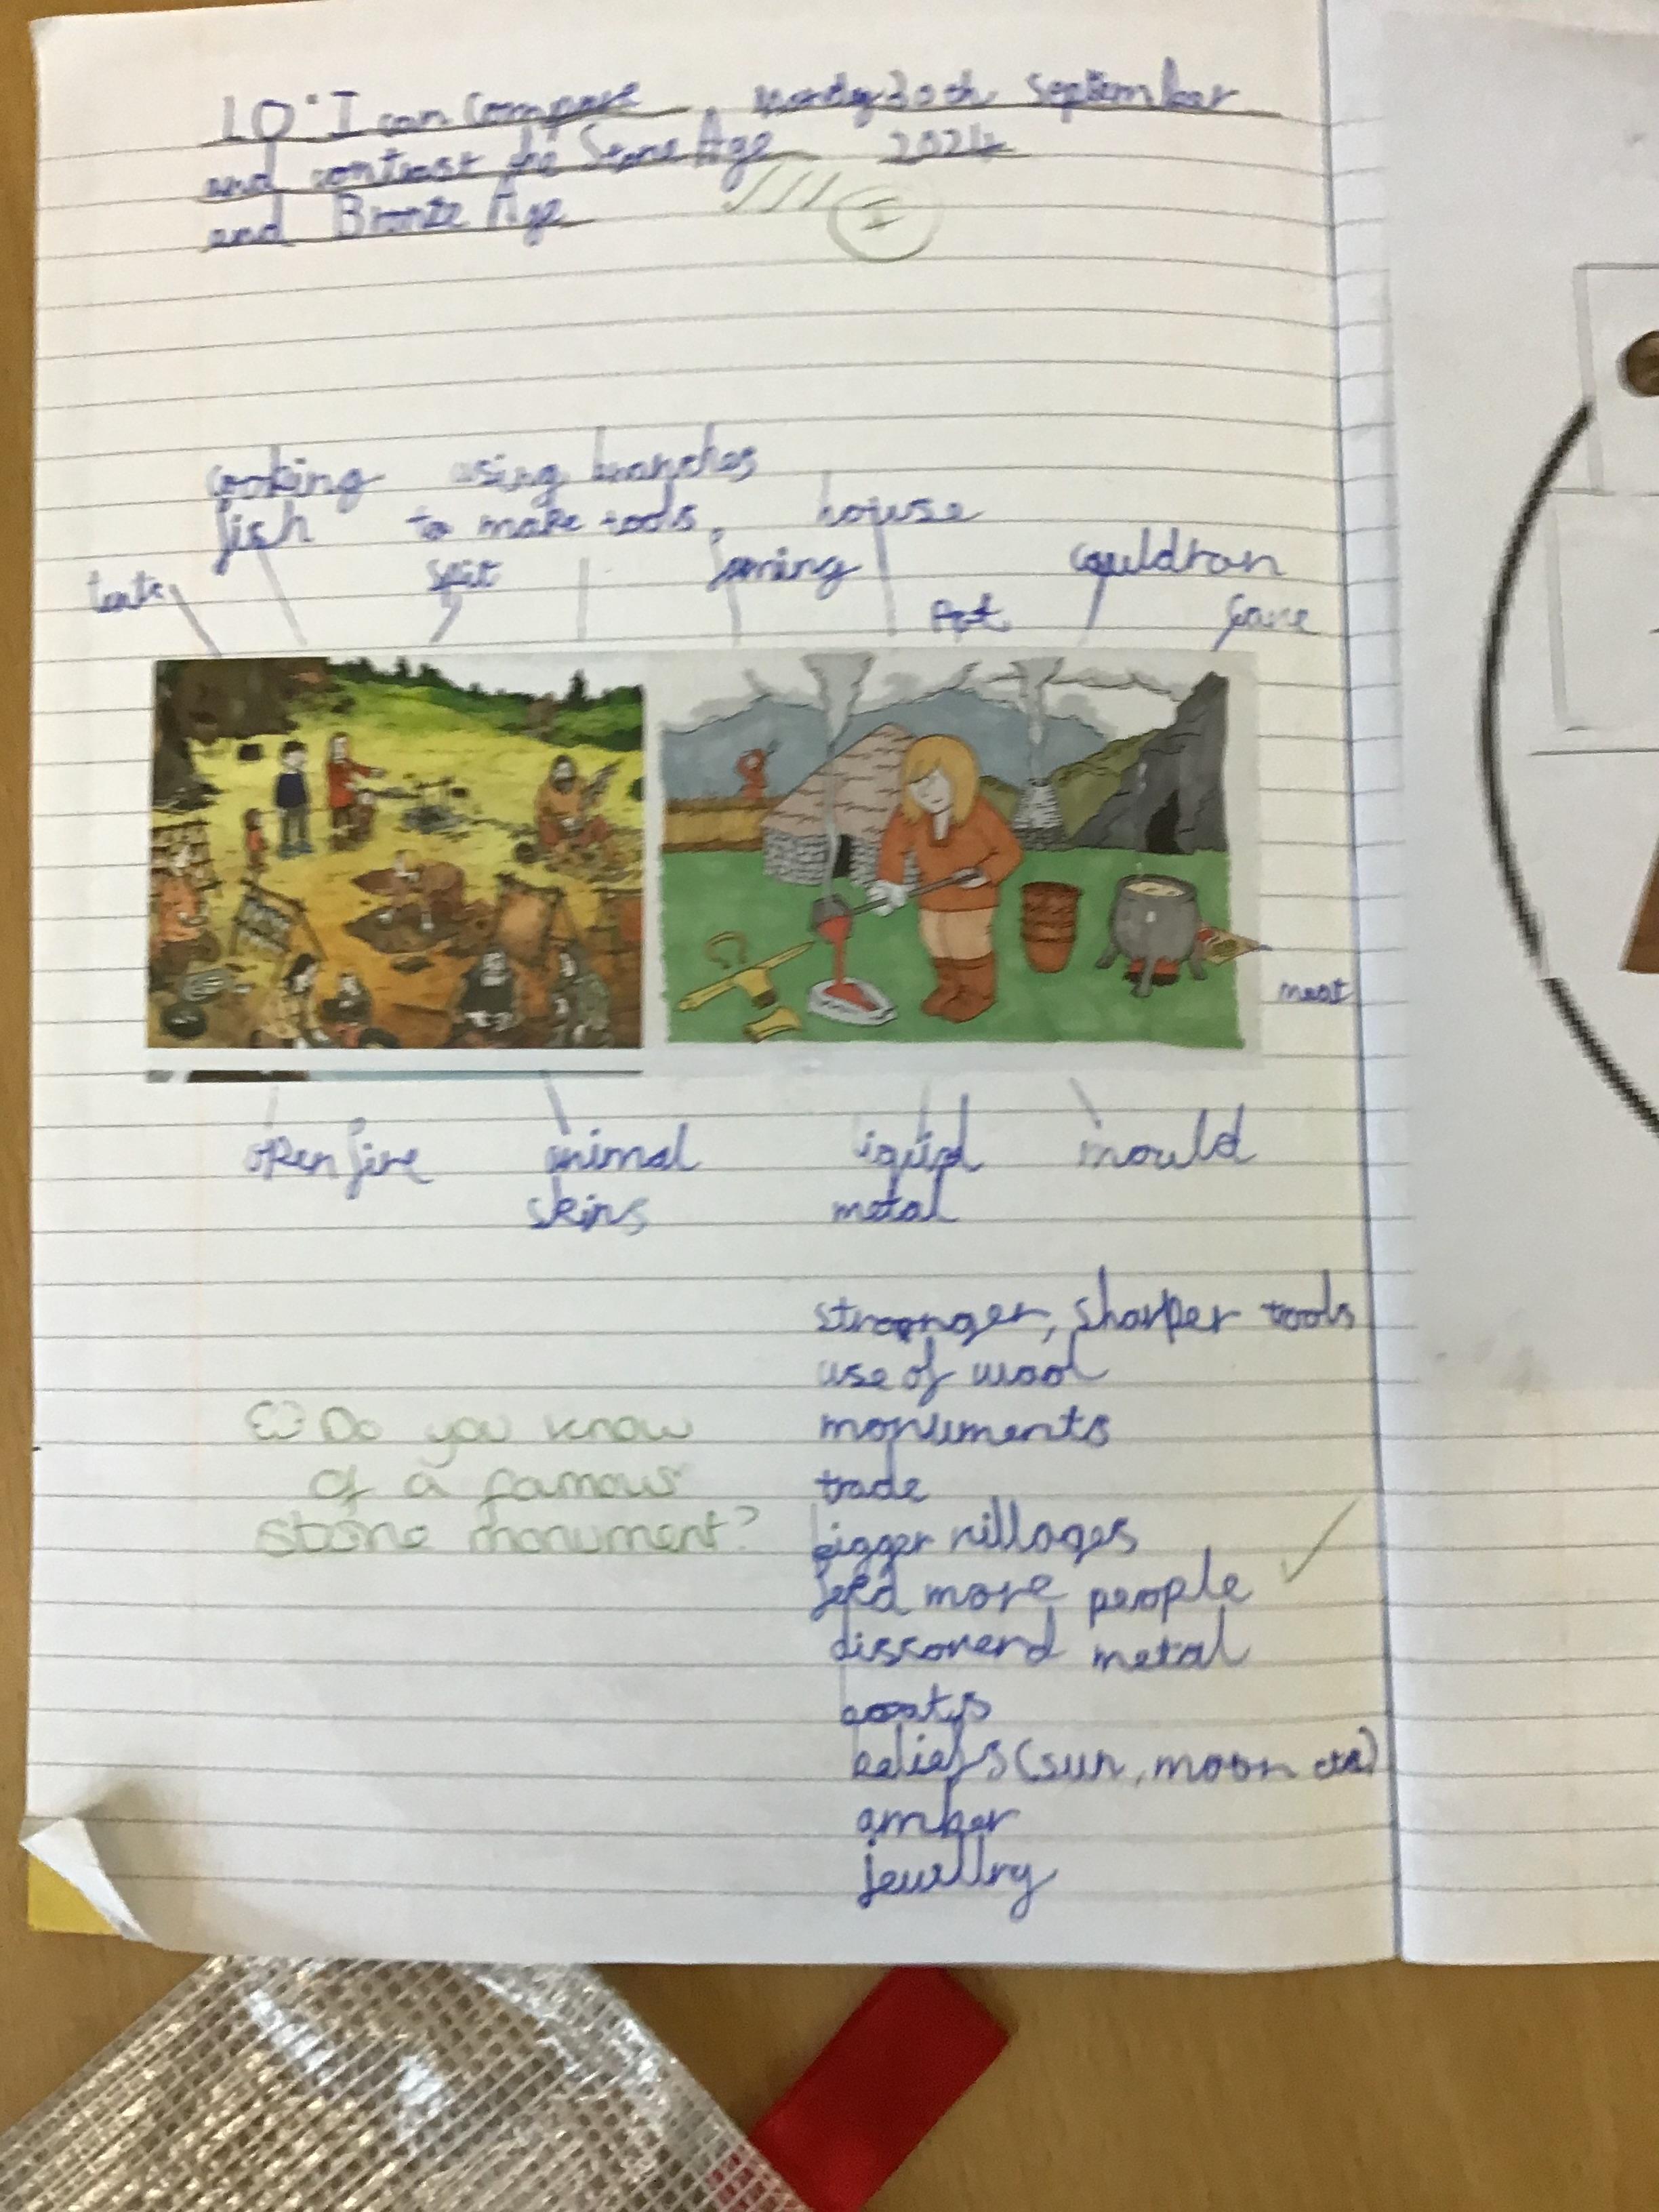 LO: I can compare
and contrast the Stone Age
and Bronze Age
30th September
2024
I
cooking
fish
using branches
to make tools
house
spit
farming
cauldran
pot
meat
open fire
animal
skins
liquid
metal
mould
stronger, sharper tools
use of wool
monuments
trade
bigger villages
feed more people
disscoverd metal
boats
beliefs (sun, moon etc)
amber
jewellry
Do you know
of a famous
stone monument?